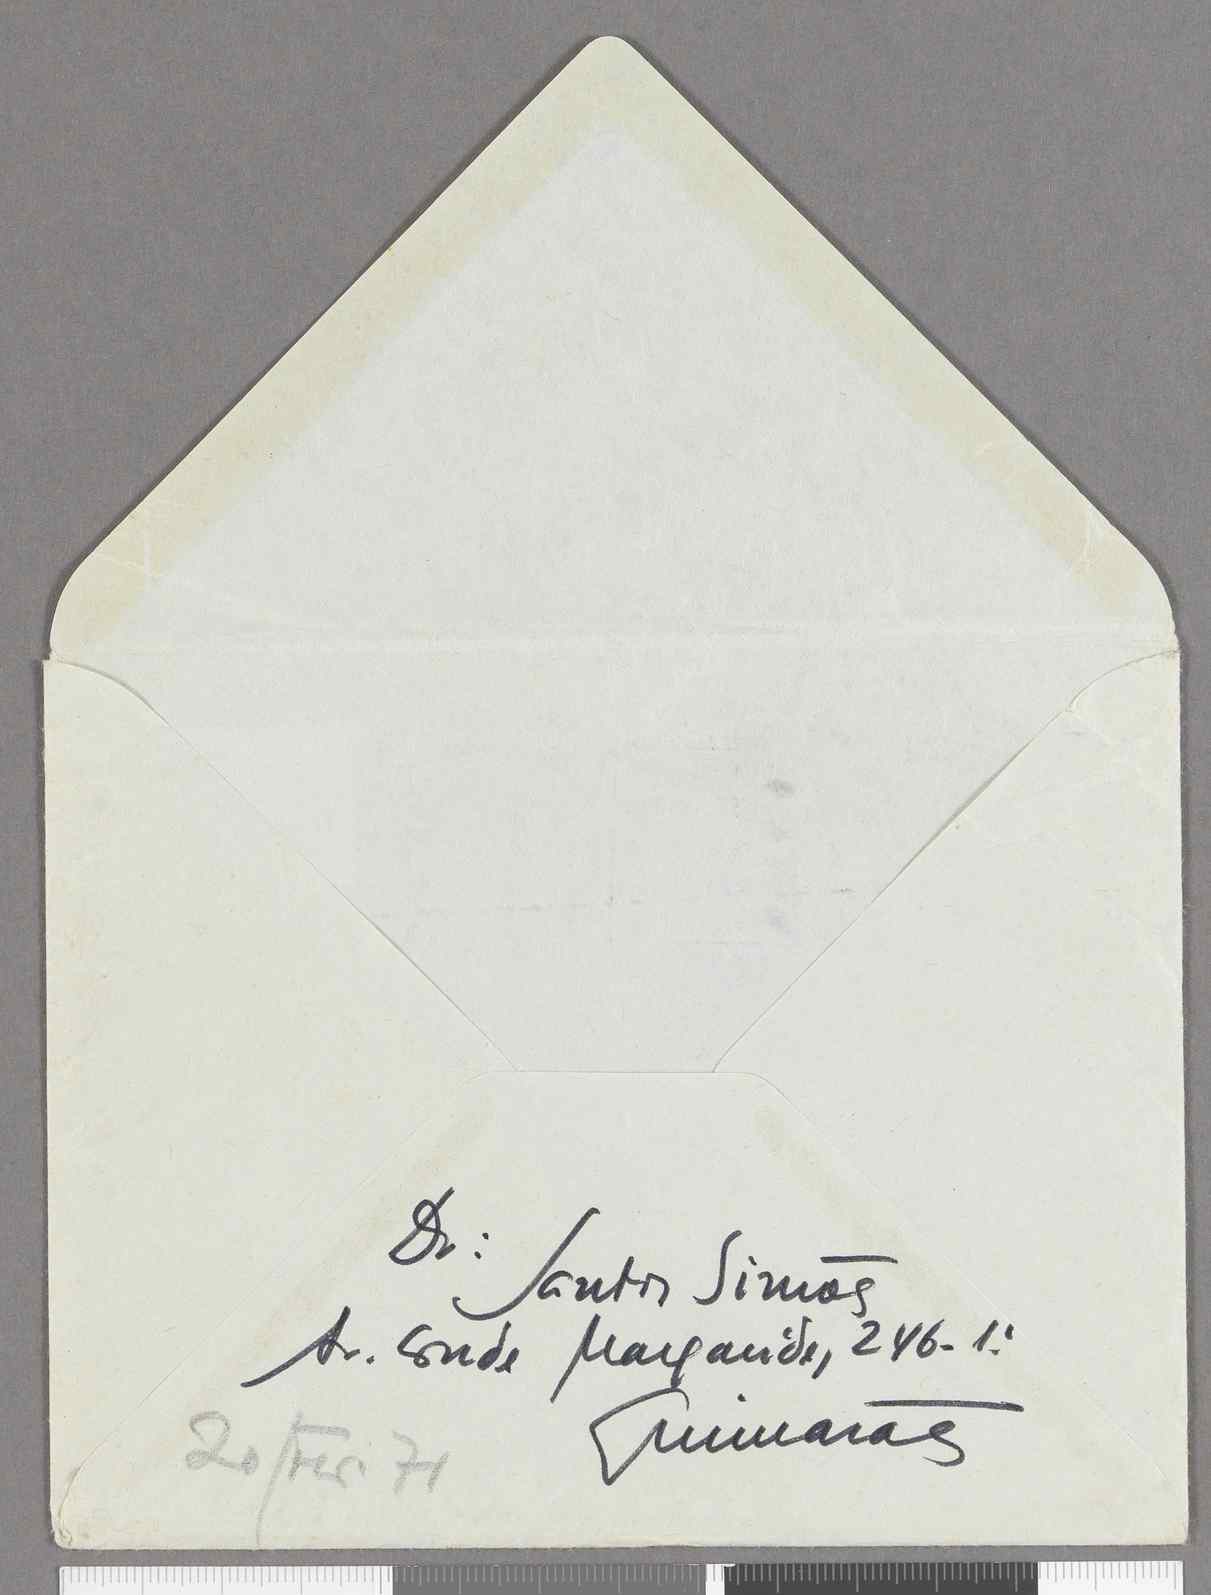 Dr:
Santos Simões
Av. Conde Margaride, 246-1º
Guimarães
20/Fev. 71